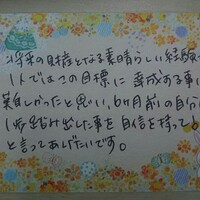 将来の目標となる素晴らしい経験
1人ではこの目標に達成する事
難しかったと思い、6ヶ月前の自分
1歩踏み出した事を自信を持って
と言ってあげたいです。